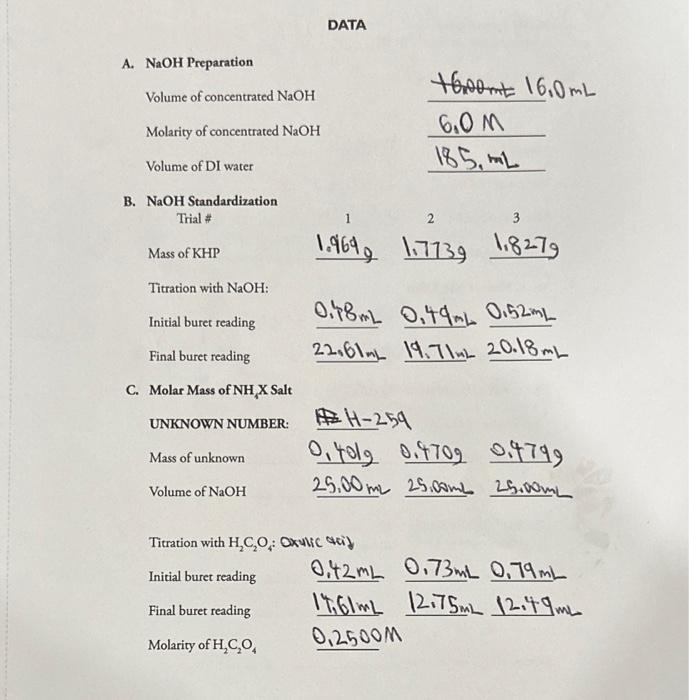 DATA
A. NaOH Preparation
Volume of concentrated NaOH 16.0 mL
Molarity of concentrated NaOH 6.0 M
Volume of DI water 185. mL
B. NaOH Standardization
Trial # 1 2 3
Mass of KHP 1.969g 1.773g 1.827g
Titration with NaOH:
Initial buret reading 0.48mL 0.49mL 0.52mL
Final buret reading 22.61mL 19.71mL 20.18mL
C. Molar Mass of NH₄X Salt
UNKNOWN NUMBER: H-259
Mass of unknown 0.401g 0.470g 0.479g
Volume of NaOH 25.00 mL 25.00mL 25.00mL
Titration with H₂C₂O₄: Oxalic acid
Initial buret reading 0.42mL 0.73mL 0.79mL
Final buret reading 14.61mL 12.75mL 12.49mL
Molarity of H₂C₂O₄ 0.2500M